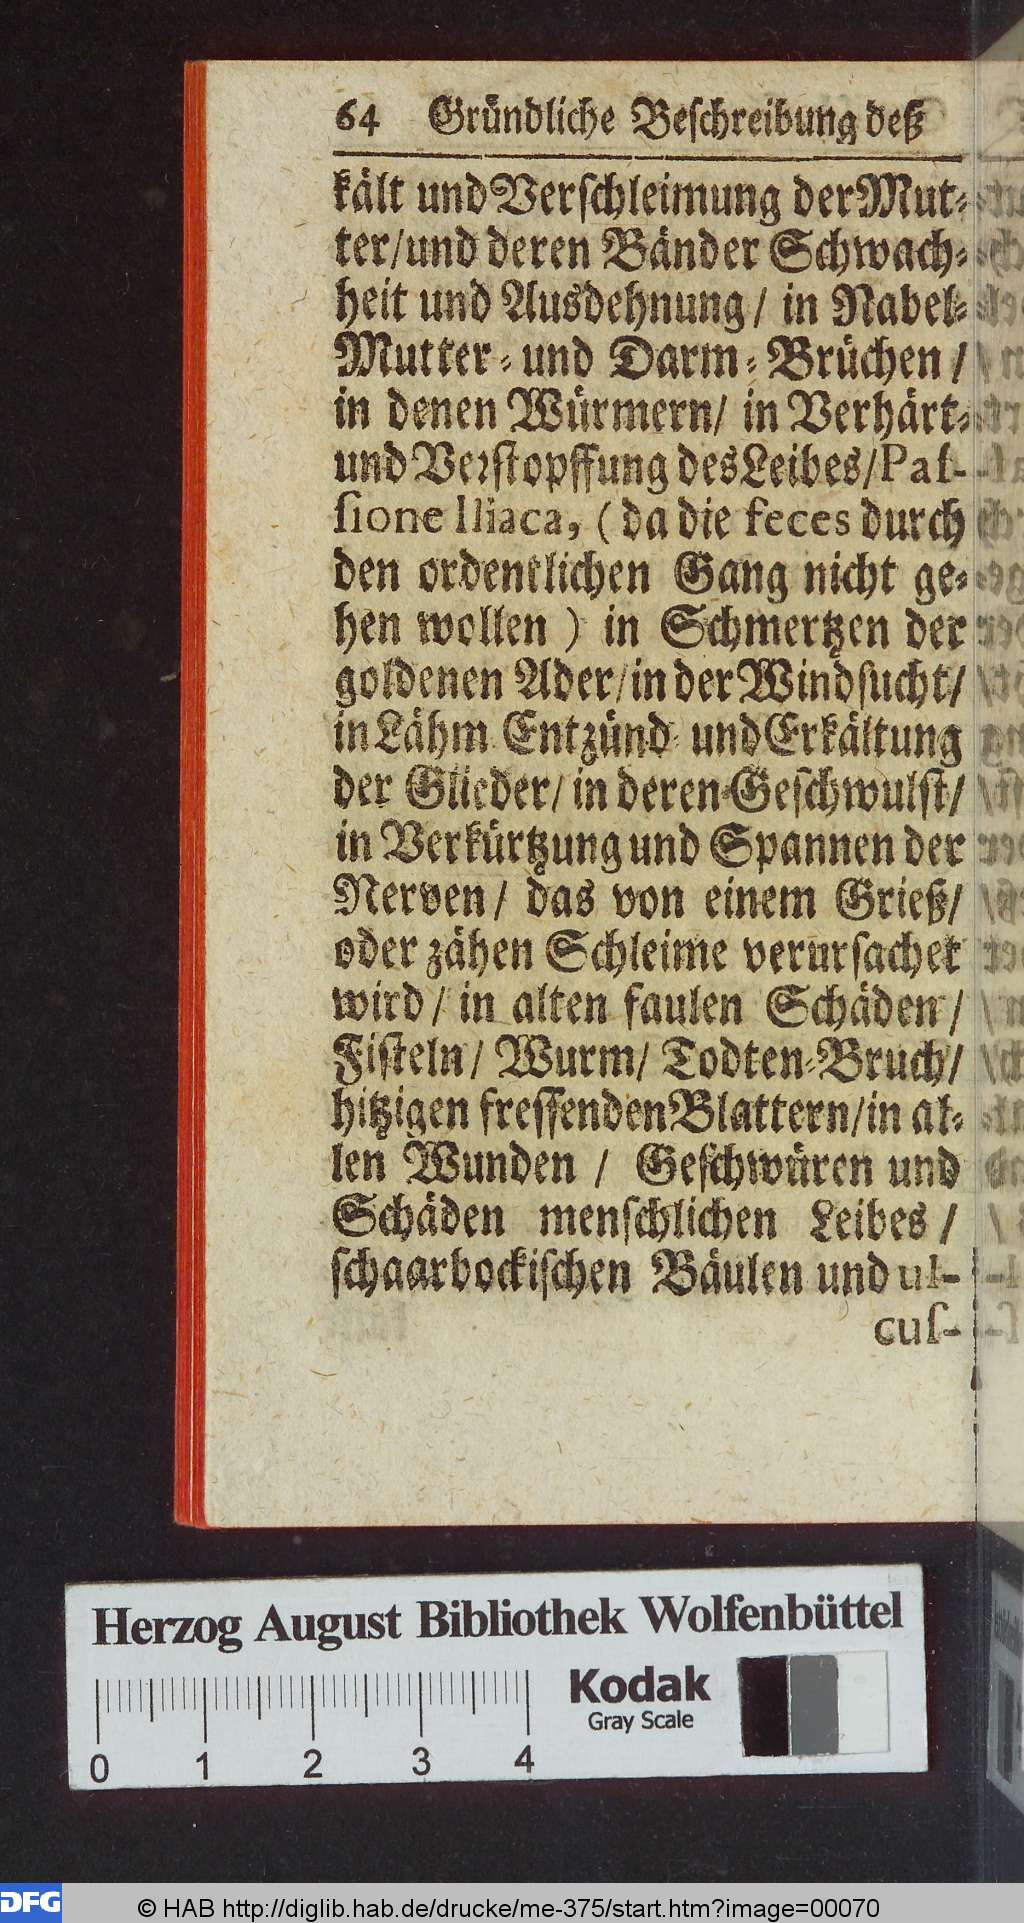 64 Gründliche Beſchreibung deß
kält und Verſchleimung der Mut-
ter/ und deren Bänder Schwach-
heit und Ausdehnung/ in Nabel-
Mutter- und Darm-Brüchen/
in denen Würmern/ in Verhärt-
und Verſtopffung des Leibes/ Paſ-
ſione Iliaca, (da die feces durch
den ordentlichen Gang nicht ge-
hen wollen) in Schmertzen der
goldenen Ader/ in der Windſucht/
in Lähm Entzünd- und Erkältung
der Glieder/ in deren Geſchwulſt/
in Verkürtzung und Spannen der
Nerven/ das von einem Grieß/
oder zähen Schleime verurſachet
wird/ in alten faulen Schäden/
Fiſteln/ Wurm/ Todten-Bruch/
hitzigen freſſenden Blattern/ in al-
len Wunden/ Geſchwüren und
Schäden menſchlichen Leibes/
ſchaarbockiſchen Bäulen und ul-
cuſ-
Herzog August Bibliothek Wolfenbüttel
Kodak
Gray Scale
0 1 2 3 4
DFG © HAB http://diglib.hab.de/drucke/me-375/start.htm?image=00070